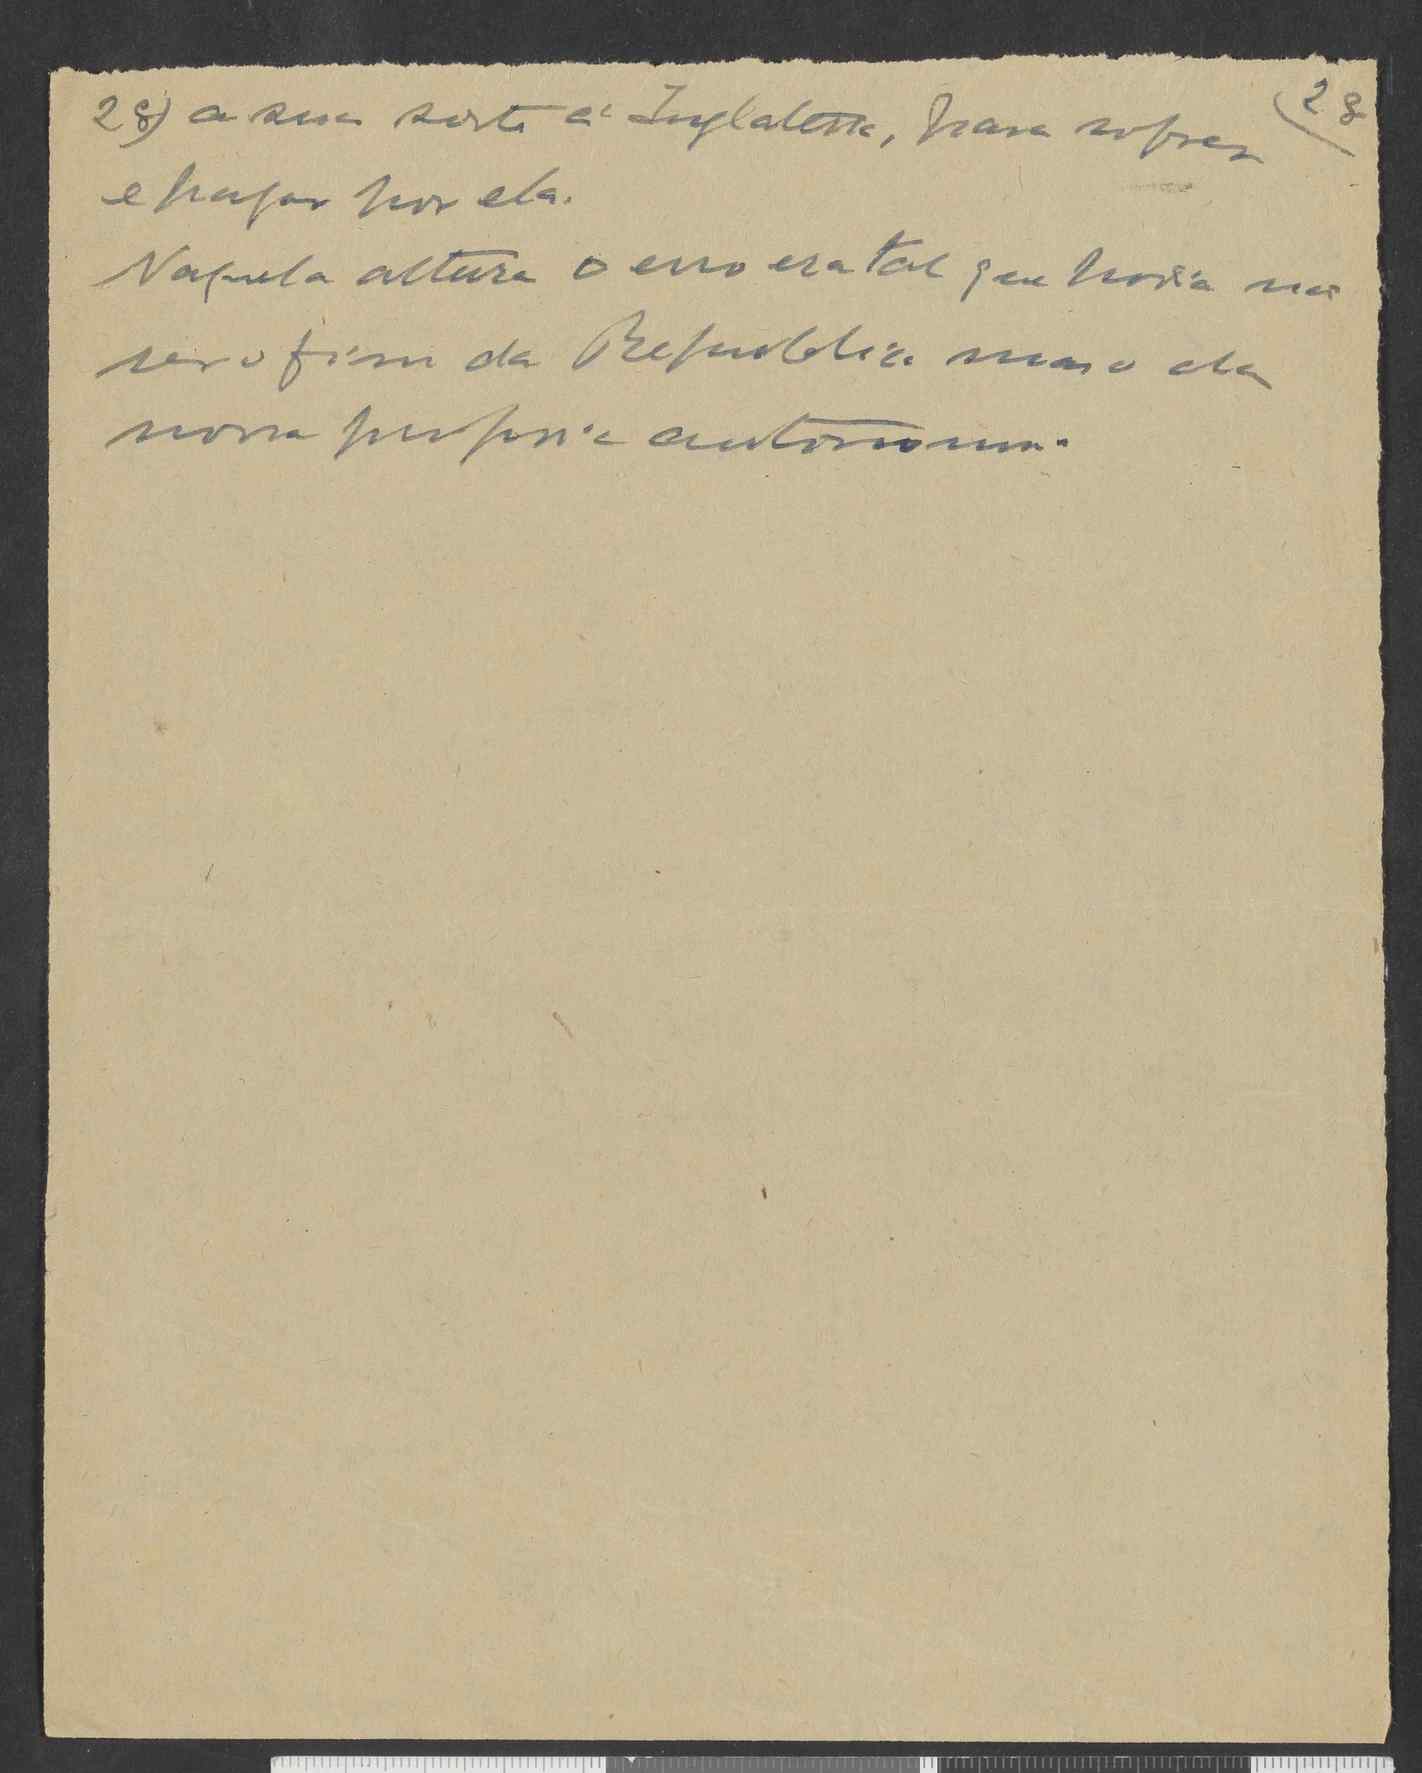 28
28) a sua sorte á Inglaterra, para sofrer
e pagar por ela.
Naquela altura o erro era tal que podia
ser o fim da Republica mas o da
nossa propria autonomia